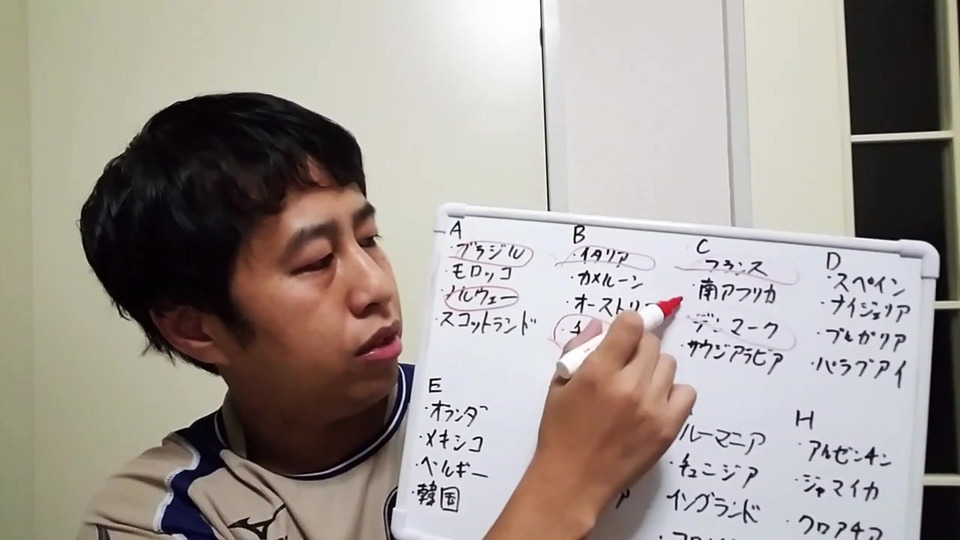 A
・ブラジル
・モロッコ
・ノルウェー
・スコットランド
B
・イタリア
・カメルーン
・オーストリ
・チ
C
・フランス
・南アフリカ
・デンマーク
・サウジアラビア
D
・スペイン
・ナイジェリア
・ブルガリア
・パラグアイ
E
・オランダ
・メキシコ
・ベルギー
・韓国
ルーマニア
・チュニジア
イングランド
H
・アルゼンチン
・ジャマイカ
・クロアチア